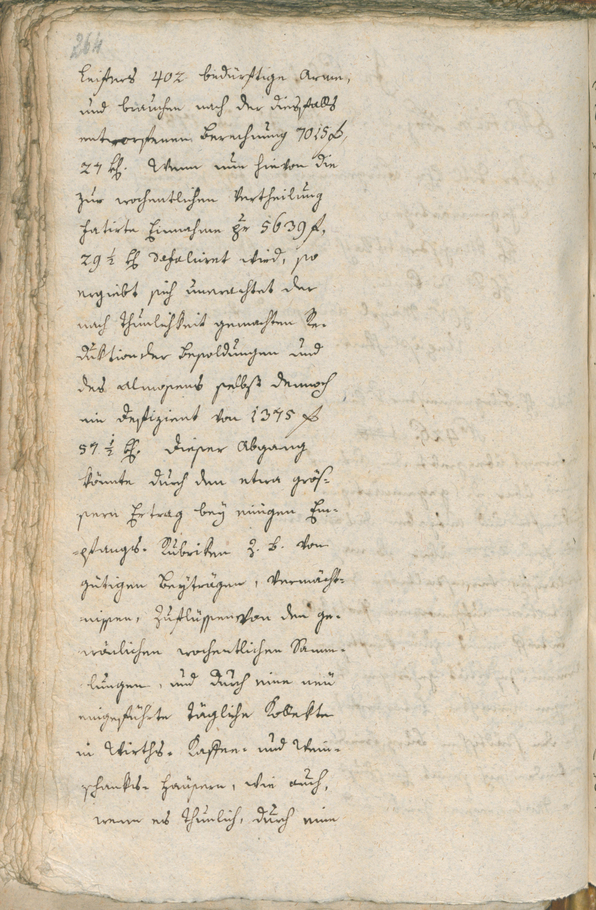 264
leisters 402 bedürftige Arme,
und brauchen nach der diesfalls
entworfenen Berechnung 7015 f,
27 kr. Wenn nun hievon die
zur wochentlichen Vertheilung
fatirte Einnahme pr 5639 f,
29 ½ kr defalciret wird, so
ergiebt sich unerachtet der
nach Thunlichkeit gemachten Re-
duktion der Besoldungen und
des Almosens selbst dennoch
ein Defizient von 1375 f
57 ½ kr. Dieser Abgang
könnte durch den etwa grös-
sern Ertrag bey einigen Em-
pfangs- Rubriken z. b. von
gütigen Beyträgen, Vermächt-
nissen, Zuflüssen von den ge-
wönlichen wochentlichen Samm-
lungen, und durch eine neu
eingeführte tägliche Kollekte
in Wirths- Kaffee- und Wein-
schanks- Häusern, wie auch,
wenn es thunlich, durch eine